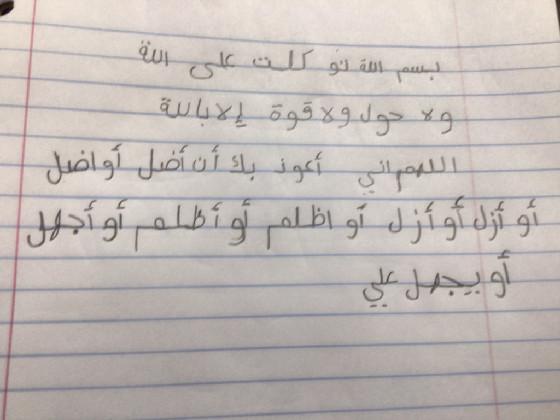 بسم الله تو كلت على الله
ولا حول ولا قوة إلا بالله
اللهم اني أعوذ بك أن أضل أو اضل
أو أزل أو أزل أو اظلم أو أظلم أو أجهل
أو يجهل علي